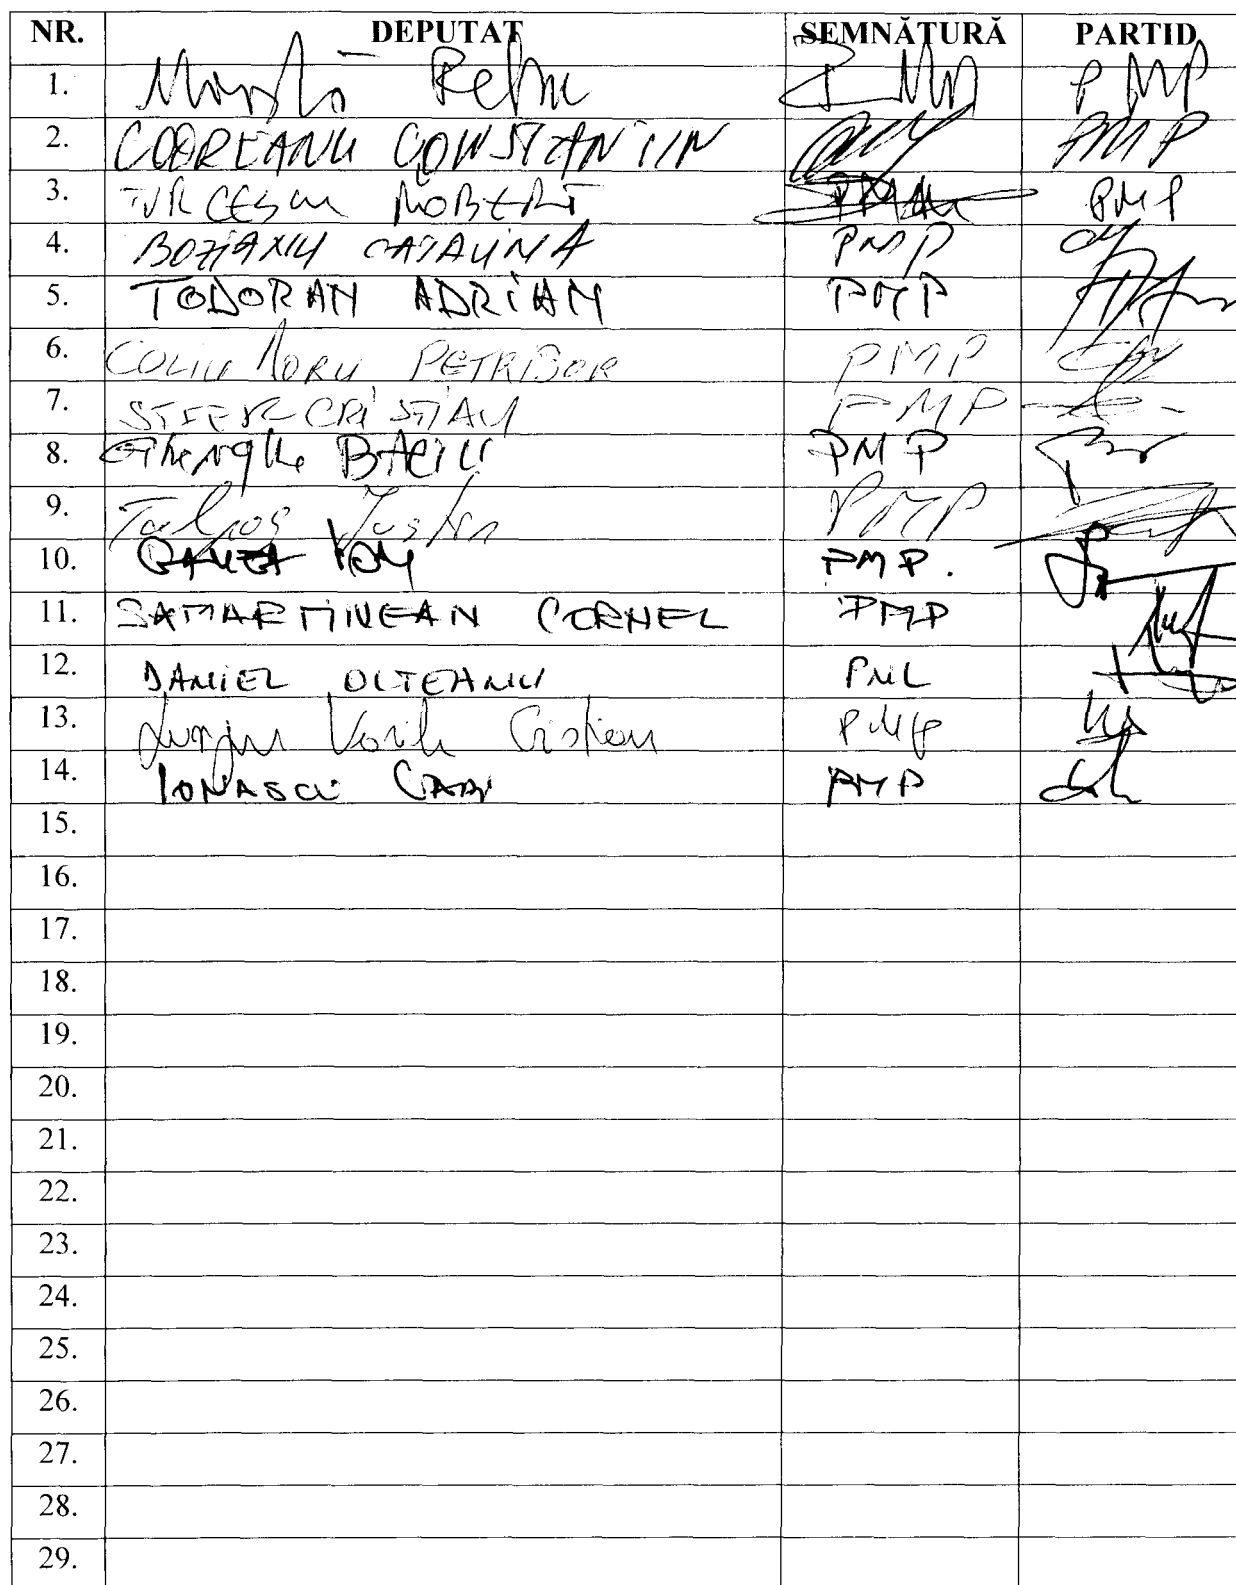 NR. DEPUTAT SEMNĂTURĂ PARTID
1. PMP
2. CODREANU CONSTANTIN PMP
3. TURCESCU ROBERT PMP
4. BOZIANU CATALINA PMP
5. TODORAN ADRIAN PMP
6. PETRISOR PMP
7. CRISTIAN PMP
8. Gheorghe BACIU PMP
9. Talpos Iustin PMP
10. PMP.
11. SAMARTINEAN CORNEL PMP
12. DANIEL OLTEANU PNL
13. Lungu Vasile Cristian PMP
14. IONASCU GABI PMP
15.
16.
17.
18.
19.
20.
21.
22.
23.
24.
25.
26.
27.
28.
29.